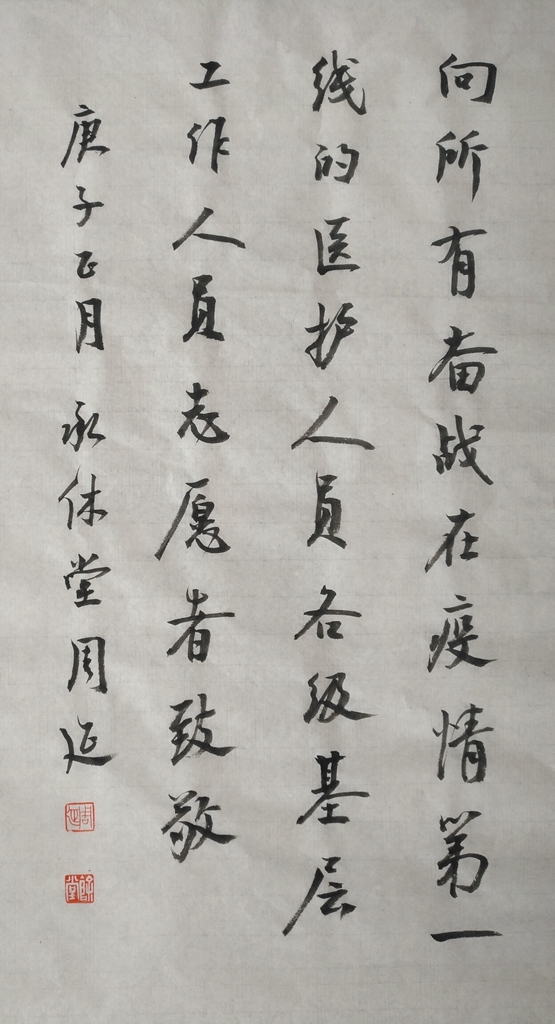 向所有奋战在疫情第一
线的医护人员各级基层
工作人员志愿者致敬
庚子正月 承休堂周延
周延